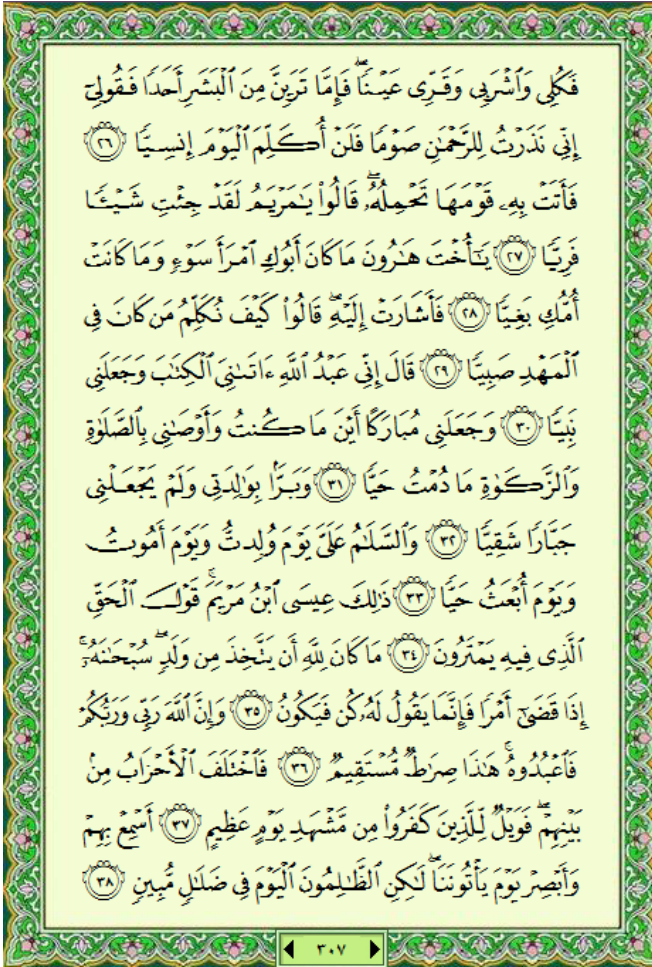 فَكُلِي وَٱشْرَبِي وَقَرِّي عَيْنٗاۖ فَإِمَّا تَرَيِنَّ مِنَ ٱلْبَشَرِ أَحَدٗا فَقُولِيٓ
إِنِّي نَذَرْتُ لِلرَّحْمَٰنِ صَوْمٗا فَلَنْ أُكَلِّمَ ٱلْيَوْمَ إِنسِيّٗا ٢٦
فَأَتَتْ بِهِۦ قَوْمَهَا تَحْمِلُهُۥۖ قَالُوا۟ يَٰمَرْيَمُ لَقَدْ جِئْتِ شَيْـٔٗا
فَرِيّٗا ٢٧ يَٰٓأُخْتَ هَٰرُونَ مَا كَانَ أَبُوكِ ٱمْرَأَ سَوْءٖ وَمَا كَانَتْ
أُمُّكِ بَغِيّٗا ٢٨ فَأَشَارَتْ إِلَيْهِۖ قَالُوا۟ كَيْفَ نُكَلِّمُ مَن كَانَ فِي
ٱلْمَهْدِ صَبِيّٗا ٢٩ قَالَ إِنِّي عَبْدُ ٱللَّهِ ءَاتَىٰنِيَ ٱلْكِتَٰبَ وَجَعَلَنِي
نَبِيّٗا ٣٠ وَجَعَلَنِي مُبَارَكًا أَيْنَ مَا كُنتُ وَأَوْصَٰنِي بِٱلصَّلَوٰةِ
وَٱلزَّكَوٰةِ مَا دُمْتُ حَيّٗا ٣١ وَبَرَّۢا بِوَٰلِدَتِي وَلَمْ يَجْعَلْنِي
جَبَّارٗا شَقِيّٗا ٣٢ وَٱلسَّلَٰمُ عَلَيَّ يَوْمَ وُلِدتُّ وَيَوْمَ أَمُوتُ
وَيَوْمَ أُبْعَثُ حَيّٗا ٣٣ ذَٰلِكَ عِيسَى ٱبْنُ مَرْيَمَۚ قَوْلَ ٱلْحَقِّ
ٱلَّذِي فِيهِ يَمْتَرُونَ ٣٤ مَا كَانَ لِلَّهِ أَن يَتَّخِذَ مِن وَلَدٖۖ سُبْحَٰنَهُۥٓۚ
إِذَا قَضَىٰٓ أَمْرٗا فَإِنَّمَا يَقُولُ لَهُۥ كُن فَيَكُونُ ٣٥ وَإِنَّ ٱللَّهَ رَبِّي وَرَبُّكُمْ
فَٱعْبُدُوهُۚ هَٰذَا صِرَٰطٞ مُّسْتَقِيمٞ ٣٦ فَٱخْتَلَفَ ٱلْأَحْزَابُ مِنۢ
بَيْنِهِمْۖ فَوَيْلٞ لِّلَّذِينَ كَفَرُوا۟ مِن مَّشْهَدِ يَوْمٍ عَظِيمٍ ٣٧ أَسْمِعْ بِهِمْ
وَأَبْصِرْ يَوْمَ يَأْتُونَنَاۖ لَٰكِنِ ٱلظَّٰلِمُونَ ٱلْيَوْمَ فِي ضَلَٰلٖ مُّبِينٖ ٣٨
٣٠٧